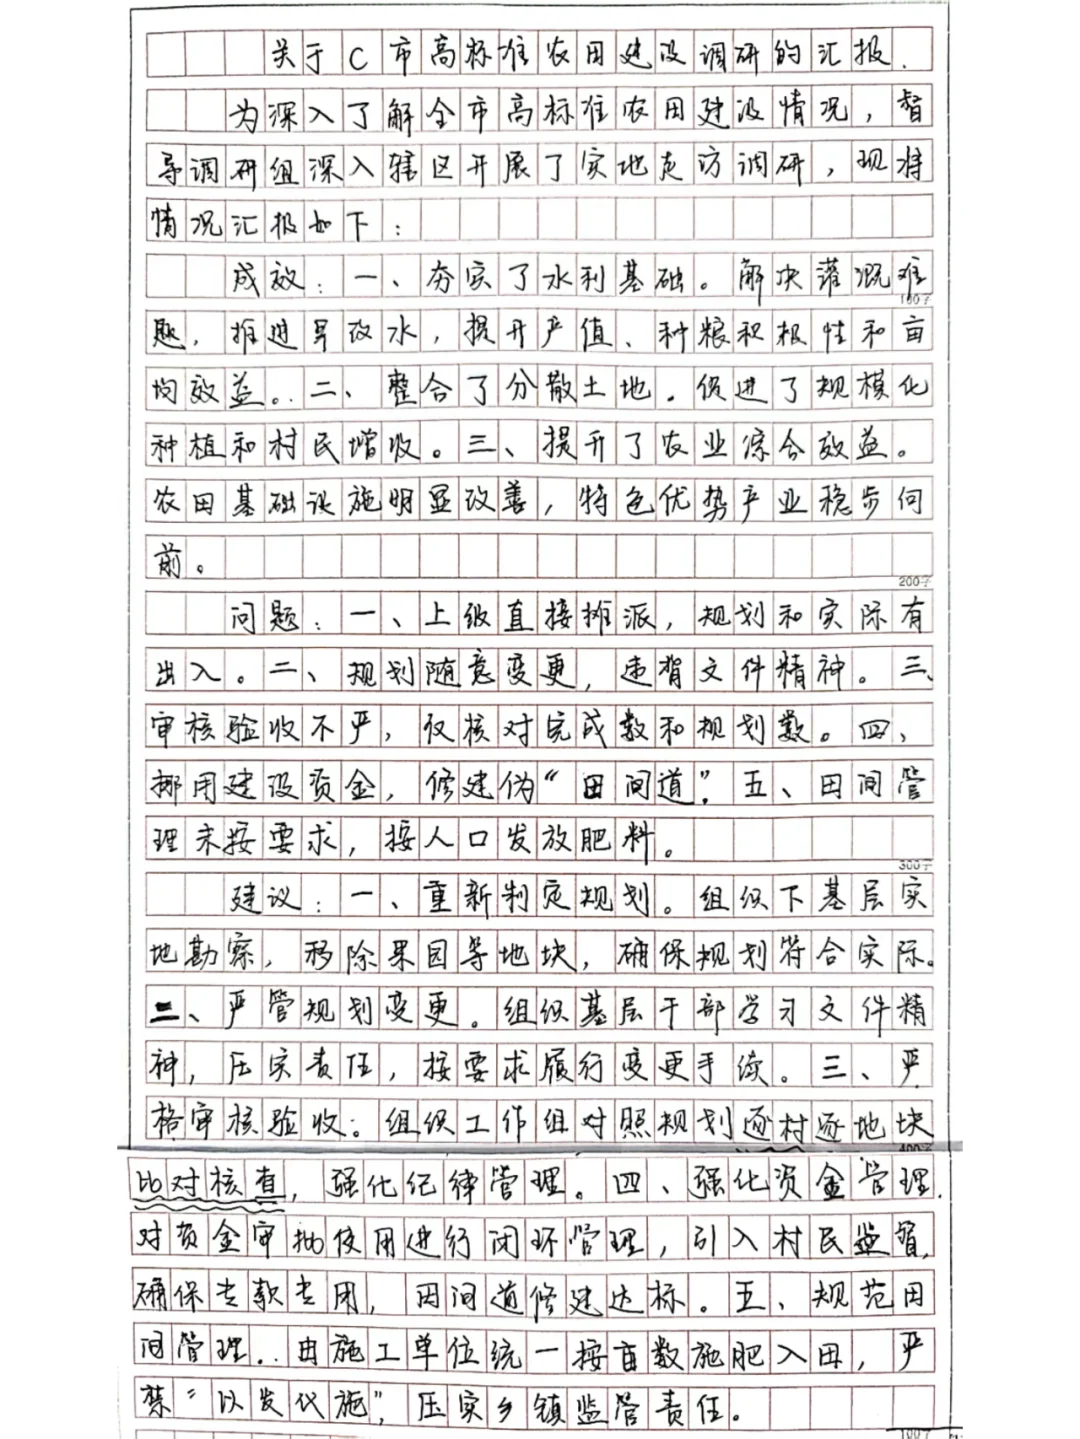 关于C市高标准农田建设调研的汇报.
为深入了解全市高标准农田建设情况,督
导调研组深入辖区开展了实地走访调研,现将
情况汇报如下:
成效:一、夯实了水利基础。解决灌溉难
100字
题,推进旱改水,提升产值、种粮积极性和亩
均效益。二、整合了分散土地.促进了规模化
种植和村民增收。三、提升了农业综合效益。
农田基础设施明显改善,特色优势产业稳步向
前。
200字
问题:一、上级直接摊派,规划和实际有
出入。二、规划随意变更,违背文件精神。三、
审核验收不严,仅核对完成数和规划数。四、
挪用建设资金,修建伪“田间道”.五、田间管
理未按要求,按人口发放肥料。
300字
建议:一、重新制定规划。组织下基层实
地勘察,移除果园等地块,确保规划符合实际。
二、严管规划变更。组织基层干部学习文件精
神,压实责任,按要求履行变更手续。三、严
格审核验收。组织工作组对照规划逐村逐地块
400字
比对核查,强化纪律管理。四、强化资金管理.
对资金审批使用进行闭环管理,引入村民监督,
确保专款专用,田间道修建达标。五、规范田
间管理..由施工单位统一按亩数施肥入田,严
禁“以发代施”,压实乡镇监管责任。
100字